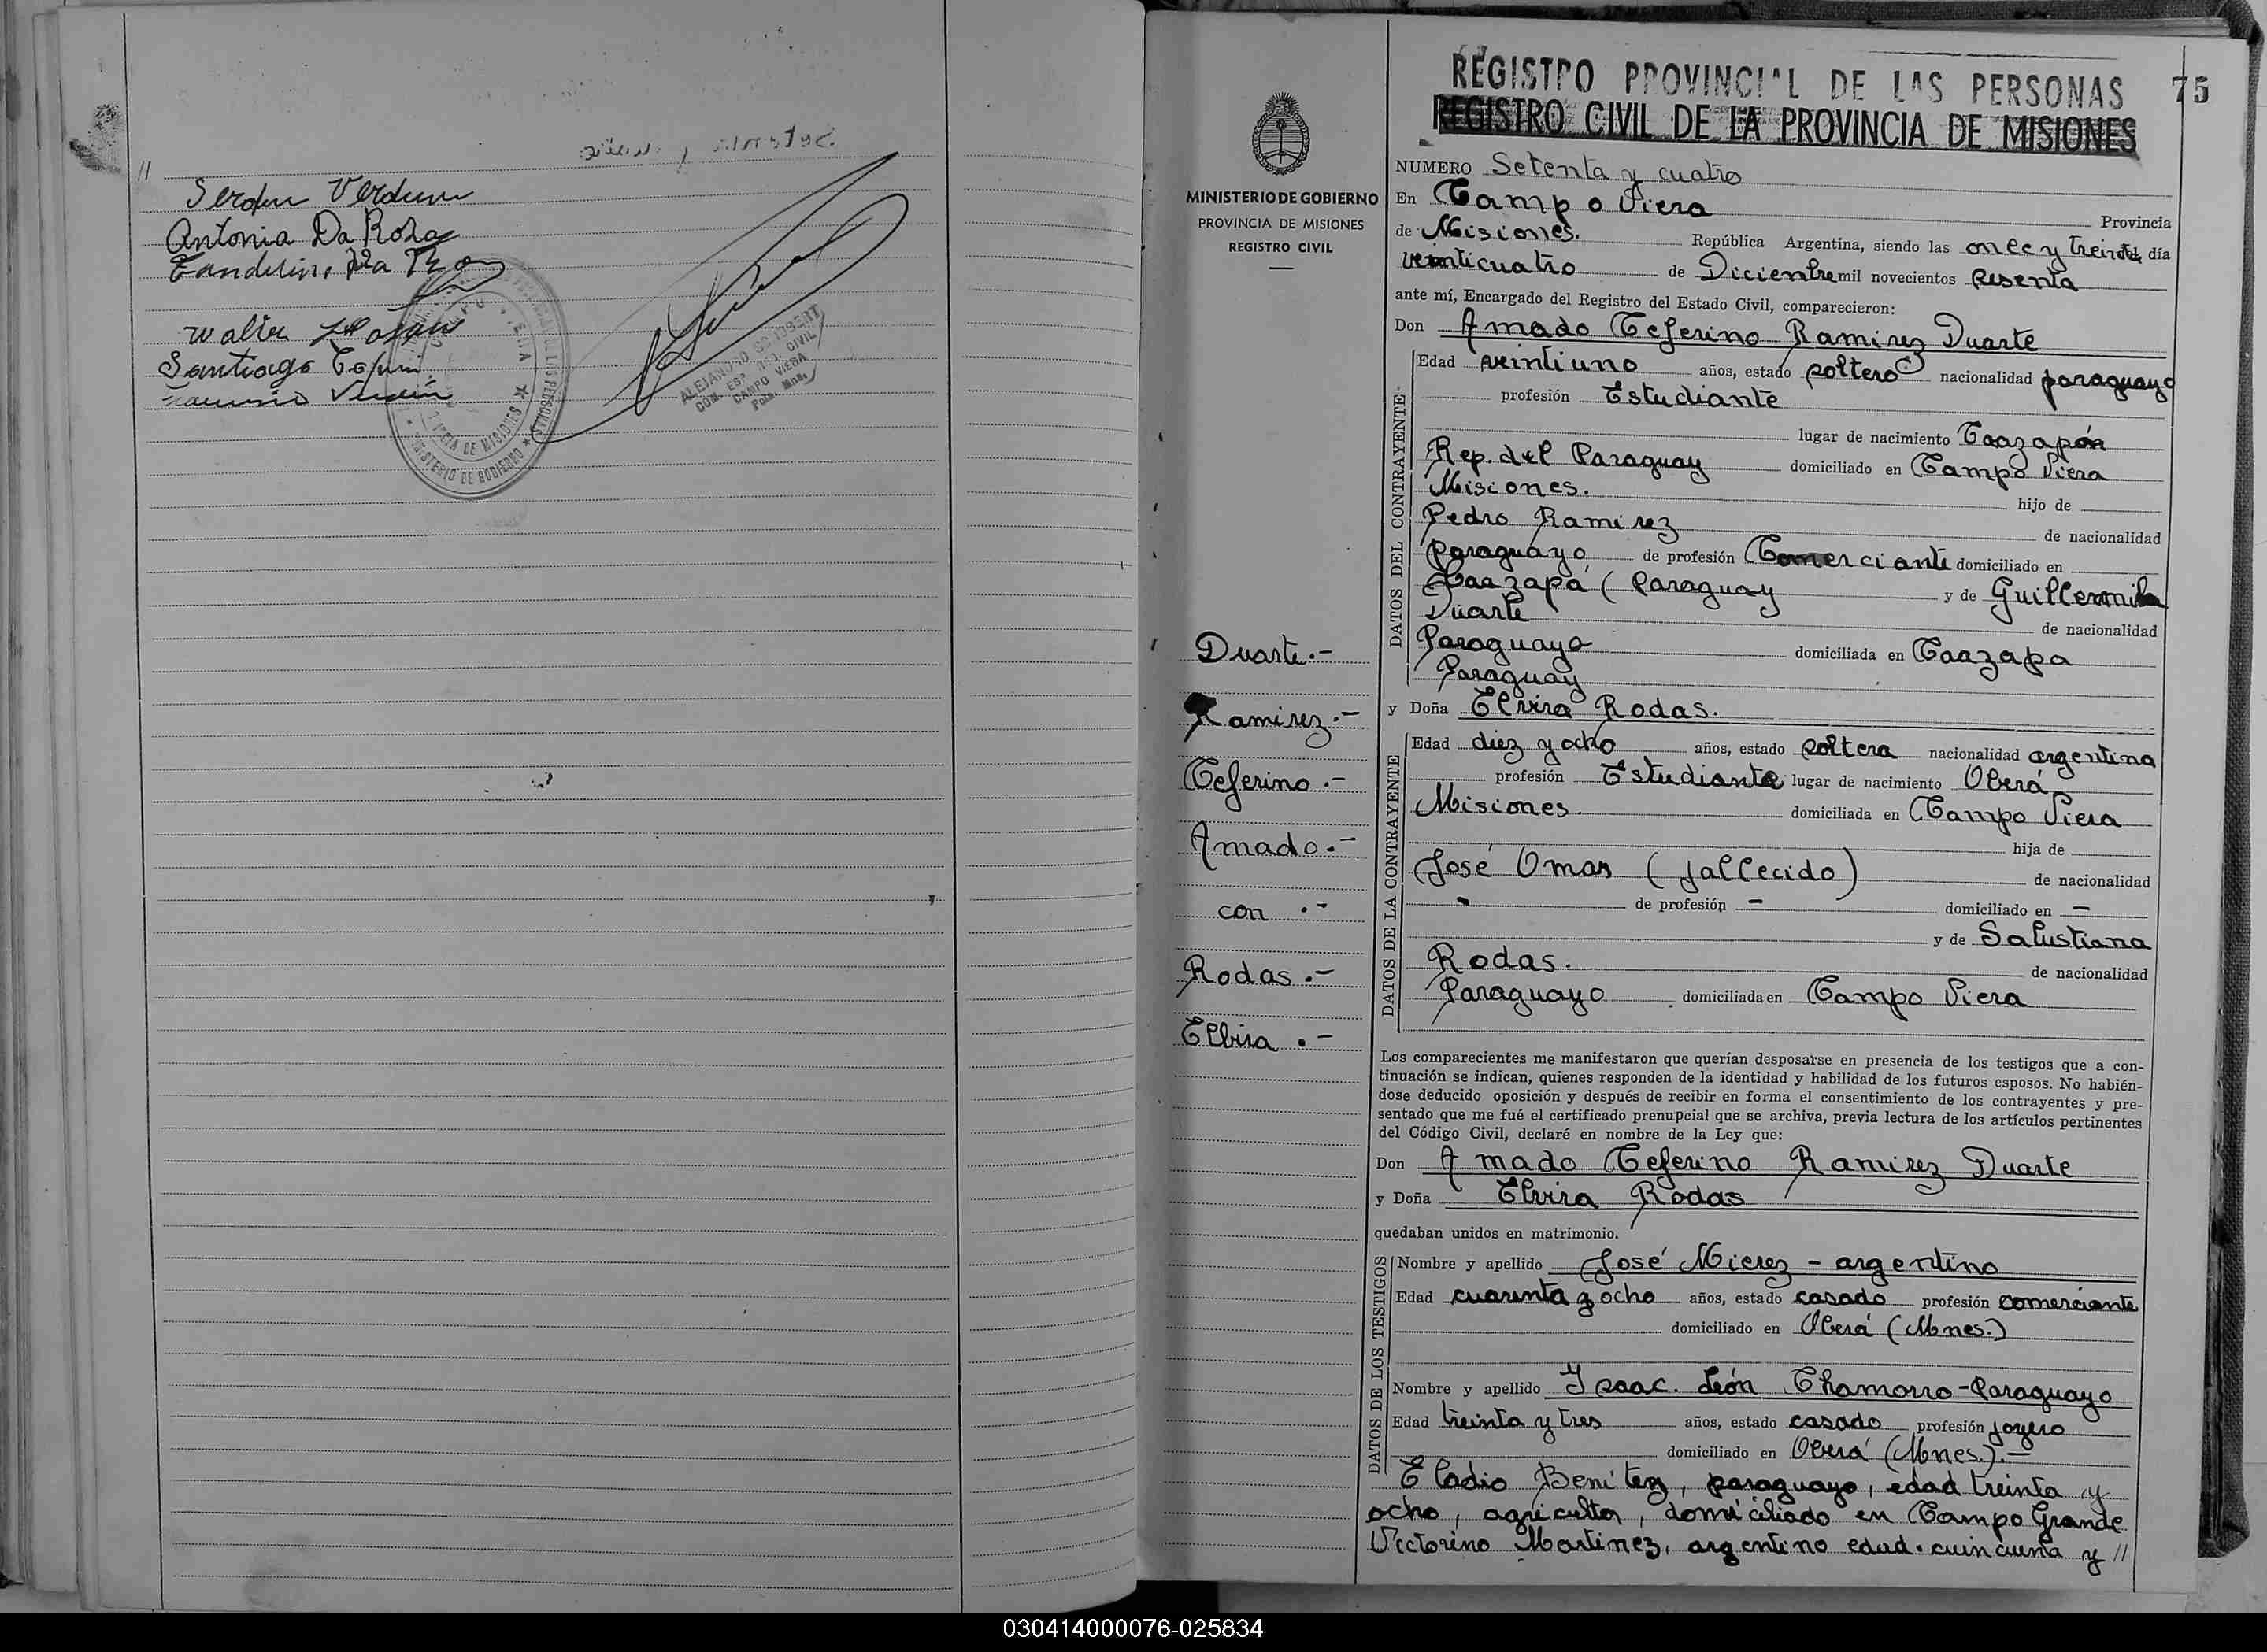 //
Antonia Da Roza
Walter
Santiago
MINISTERIO DE GOBIERNO
ALEJANDRO
CAMPO VIERA
MINISTERIO DE GOBIERNO
PROVINCIA DE MISIONES
REGISTRO CIVIL
Duarte.-
Ramirez.-
Ceferino.-
Amado.-
con .-
Rodas.-
Elbira.-
REGISTRO PROVINCIAL DE LAS PERSONAS 75
REGISTRO CIVIL DE LA PROVINCIA DE MISIONES
NUMERO Setenta y cuatro
En Campo Viera Provincia
de Misiones. República Argentina, siendo las once y treinta día
veinticuatro de Diciembre mil novecientos sesenta
ante mí, Encargado del Registro del Estado Civil, comparecieron:
Don Amado Ceferino Ramirez Duarte
DATOS DEL CONTRAYENTE
Edad veintiuno años, estado soltero nacionalidad paraguayo
profesión Estudiante
lugar de nacimiento Caazapán
Rep. del Paraguay domiciliado en Campo Viera
Misiones. hijo de
Pedro Ramirez de nacionalidad
Paraguayo de profesión Comerciante domiciliado en
Caazapá ( Paraguay y de Guillermina
Duarte de nacionalidad
Paraguaya domiciliada en Caazapa
Paraguay
y Doña Elvira Rodas.
DATOS DE LA CONTRAYENTE
Edad diez y ocho años, estado soltera nacionalidad argentina
profesión Estudiante lugar de nacimiento Oberá
Misiones. domiciliada en Campo Viera
hija de
José Omar (fallecido) de nacionalidad
- de profesión - domiciliado en -
y de Salustiana
Rodas. de nacionalidad
Paraguayo domiciliada en Campo Viera
Los comparecientes me manifestaron que querían desposarse en presencia de los testigos que a con-
tinuación se indican, quienes responden de la identidad y habilidad de los futuros esposos. No habién-
dose deducido oposición y después de recibir en forma el consentimiento de los contrayentes y pre-
sentado que me fué el certificado prenupcial que se archiva, previa lectura de los artículos pertinentes
del Código Civil, declaré en nombre de la Ley que:
Don Amado Ceferino Ramirez Duarte
y Doña Elvira Rodas
quedaban unidos en matrimonio.
DATOS DE LOS TESTIGOS
Nombre y apellido José Mierez - argentino
Edad cuarenta y ocho años, estado casado profesión comerciante
domiciliado en Oberá (Mnes.)
Nombre y apellido Isaac. León Chamorro - Paraguayo
Edad treinta y tres años, estado casado profesión joyero
domiciliado en Oberá (Mnes.).-
Eladio Benítez, paraguayo, edad treinta y
ocho, agricultor, domiciliado en Campo Grande
Victorino Martinez, argentino edad. cuincuenta y //
030414000076-025834